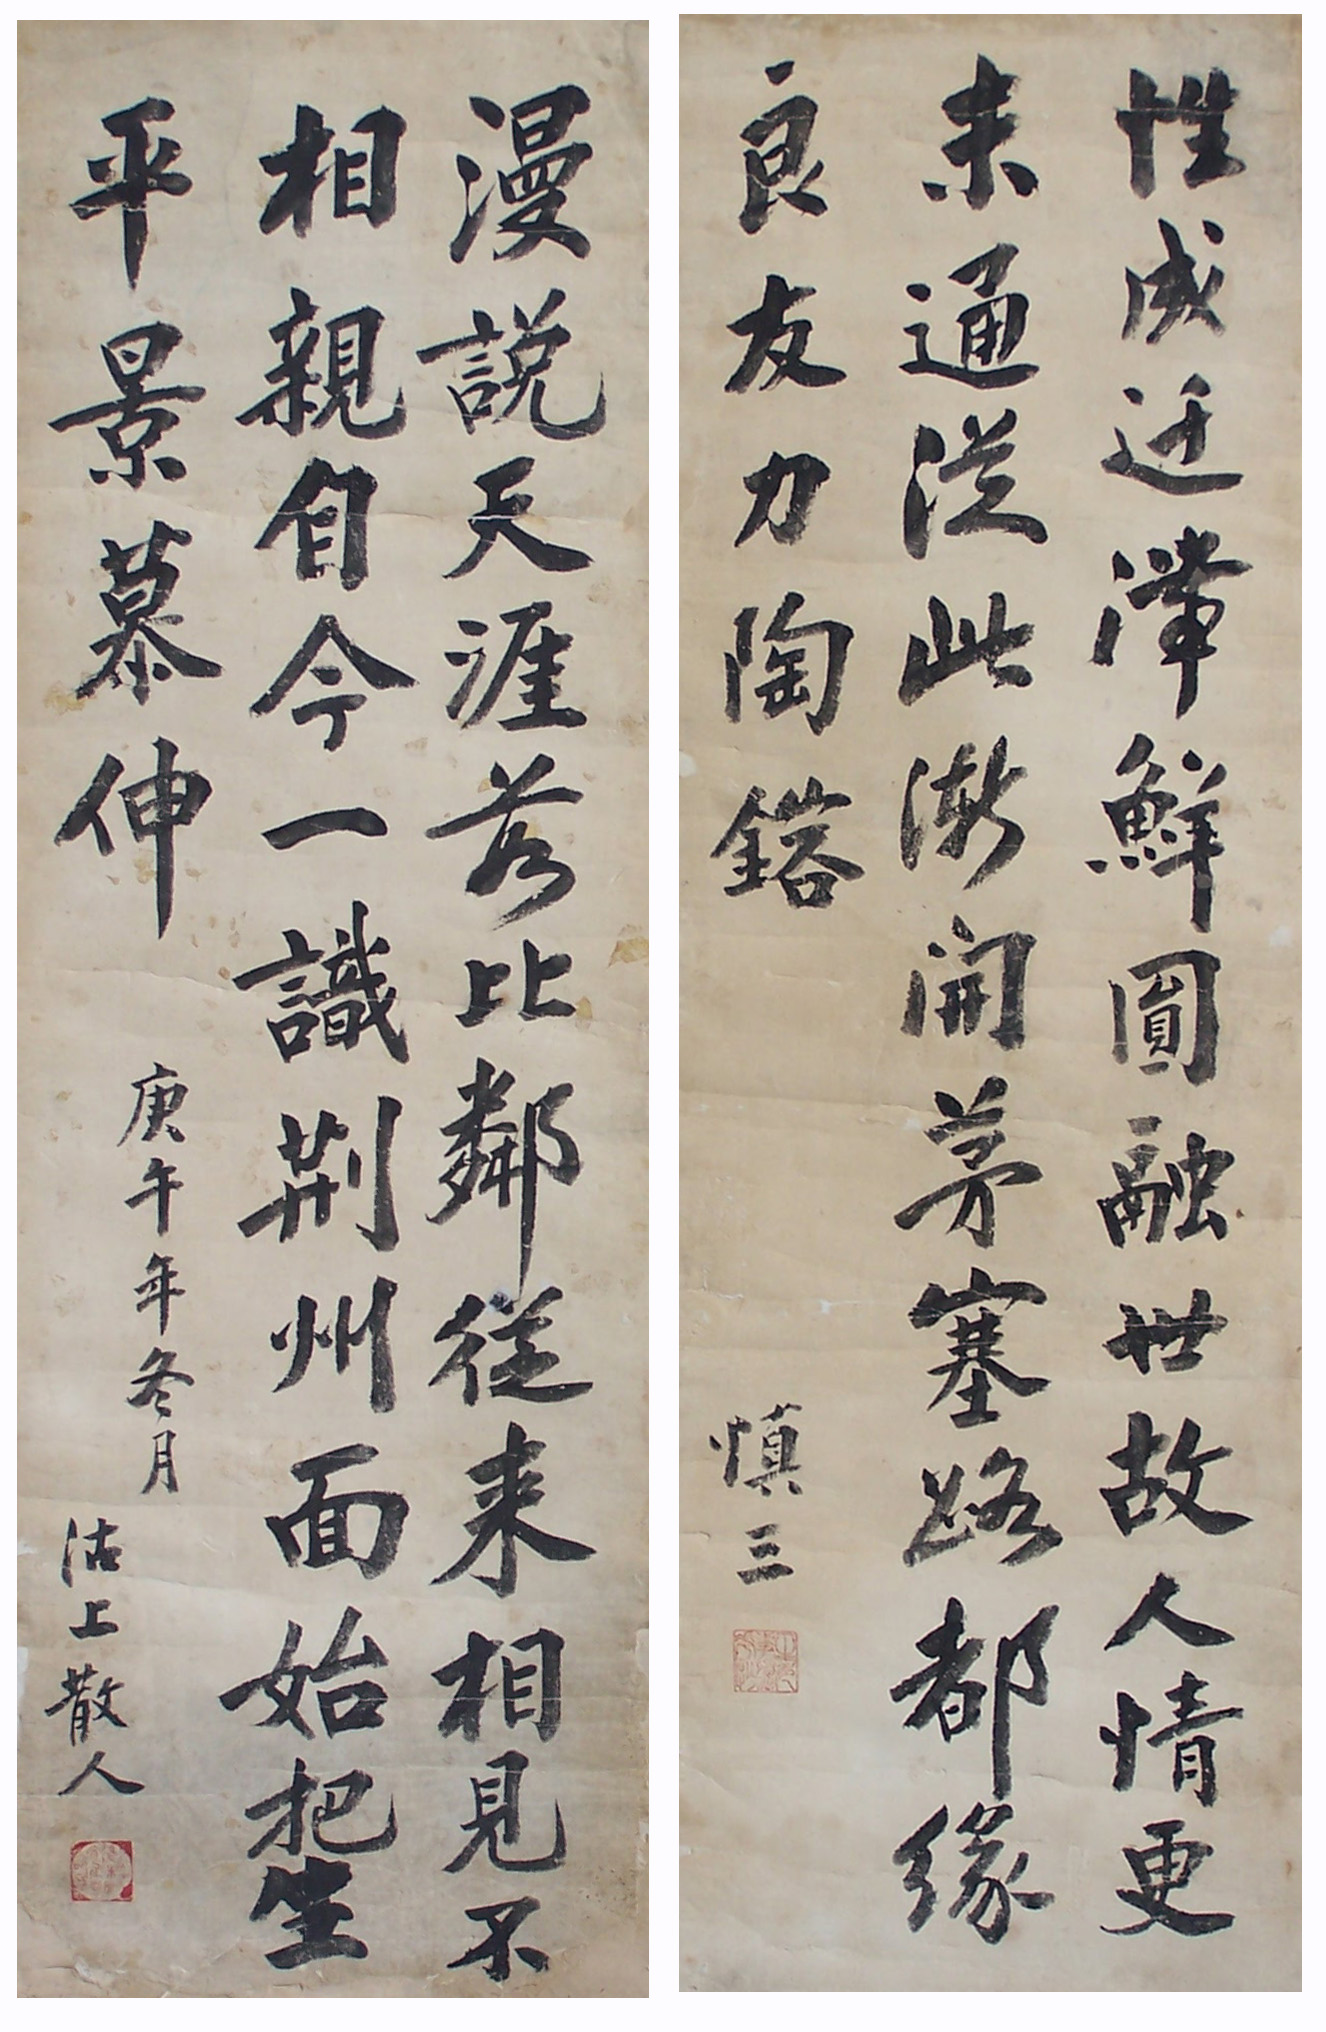 性成迂滯鮮圓融世故人情更
未通從此漸開茅塞路都緣
良友力陶鎔
慎三
漫説天涯若比鄰從来相見不
相親自今一識荆州面始把生
平景慕伸
庚午年冬月
沽上散人